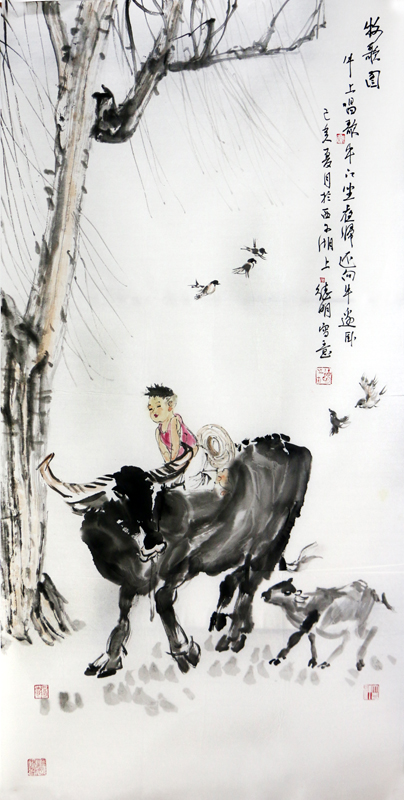 牧歌图
牛上唱歌牛下坐夜归还向牛边卧
己亥夏月於西子湖上继明写意